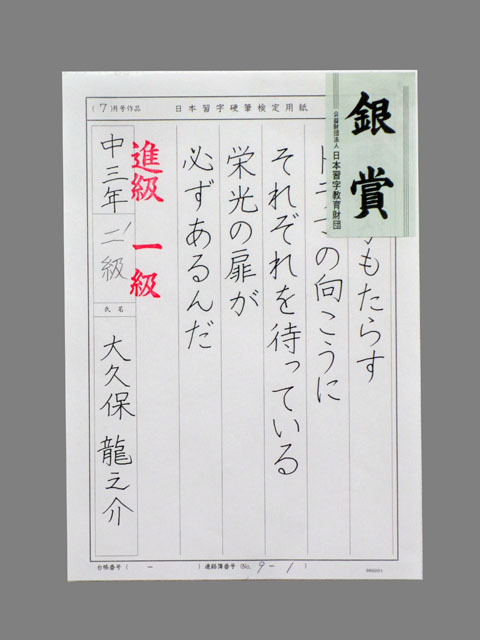 (7)月号作品
日本習字硬筆検定用紙
銀賞
公益財団法人 日本習字教育財団
もたらす
の向こうに
それぞれを待っている
栄光の扉が
必ずあるんだ
進級 一級
中三年 二級
氏名
大久保 龍之介
台帳番号( - ) 連絡簿番号(No. 9-1 )